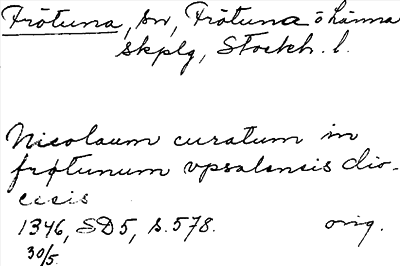 Frötuna, sn, Frötuna o Länna
skplg, Stockh. l.
Nicolaum curatum in
frøtunum vpsalensis dio-
cesis
1346, SD5, s. 578. orig.
30/5.